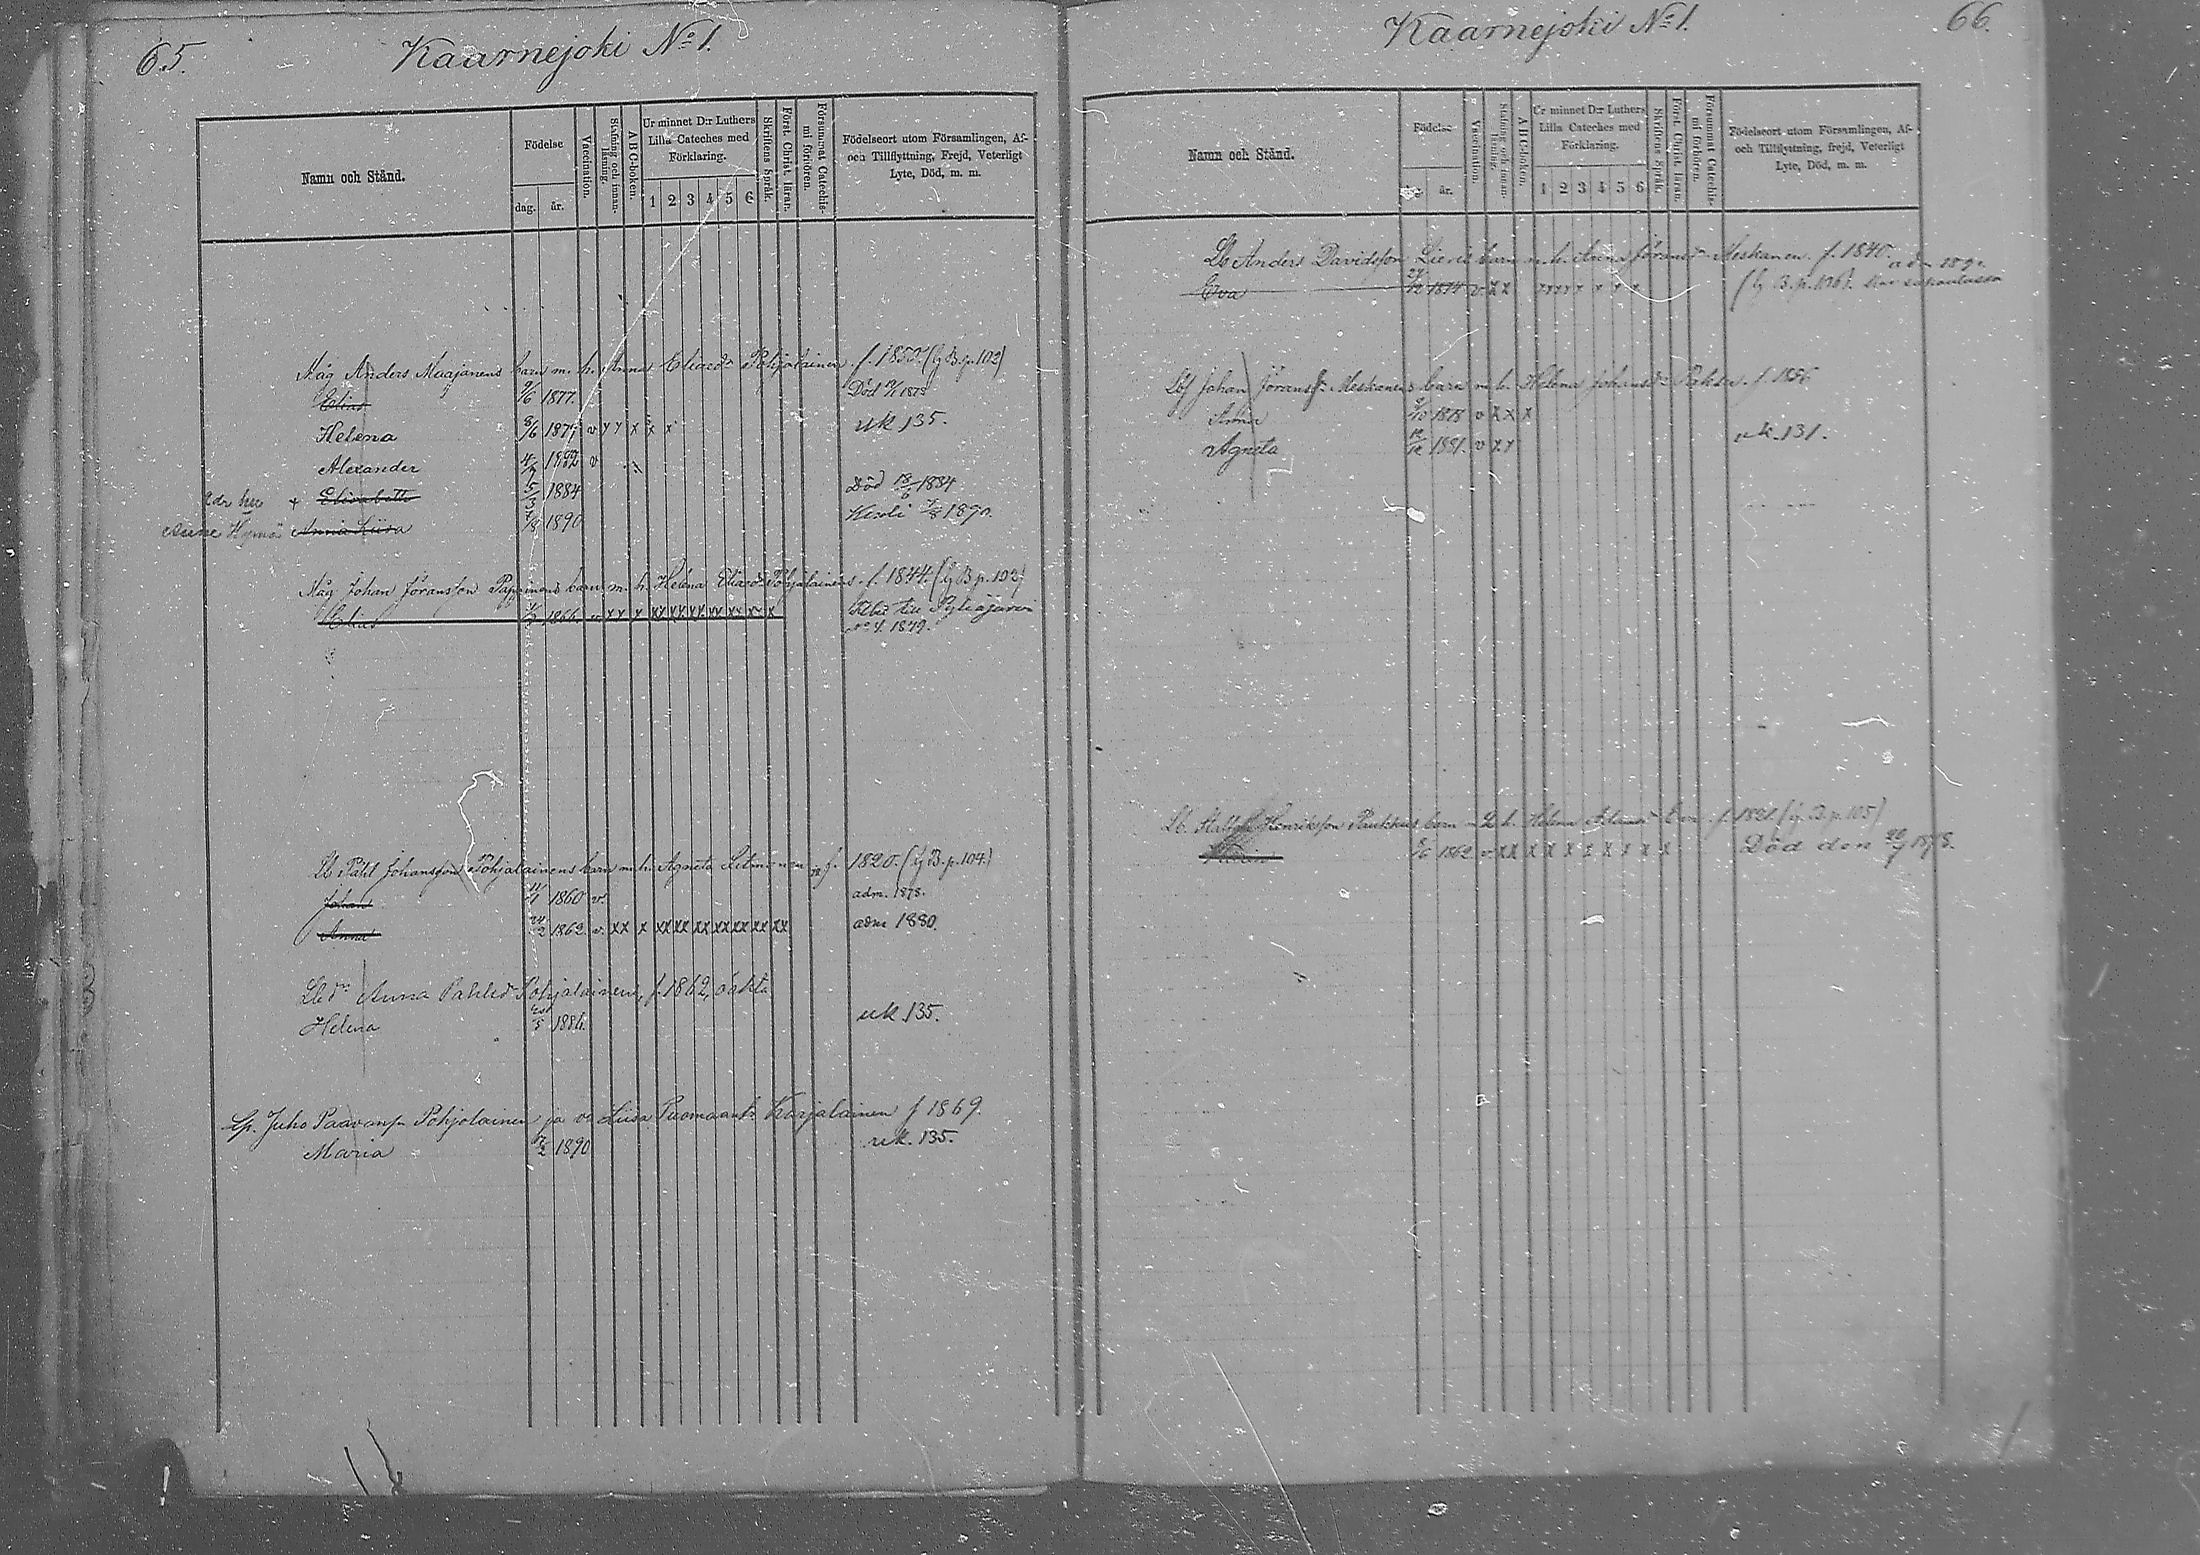 65.
Kaarnejoki No 1.
Namn och Stånd.
Födelse
dag.
år.
Vaccination.
Stafning och innan-
läsning.
A B C-boken.
Ur minnet D:r Luthers
Lilla Cateches med
Förklaring.
1 2 3 4 5 6
Skriftens Språk.
Först. Christ. läran.
Försummat Catechis-
mi förhören.
Födelseort utom Församlingen, Af-
och Tillflyttning, Frejd, Veterligt
Lyte, Död, m. m.
Måg Anders Muajanens barn m. h. Anna Eliasdr Pohjalainen f. 1852. (Ly B. p. 102)
Elias 9/6 1877. Död 1878
Helena 8/6 1879 v x x x x x uk 135.
Alexander 4/7 1882 v
+ Elisabeth 5/3 1884 Död 18/6 1884
Anna Liisa 1890 Kuoli 1890.
Måg Johan Jöransson Pappinens barn m. h. Helena Eliasdr Pohjalainens f. 1844. (Ly B p. 102)
Elias 1866 v x x x xx xx xx xx xx x x till Pyhäjärvi
No 4. 1879.
Lb Påhl Johansson Pohjalainens barn m. h. Agneta f. 1820. (Ly B. p. 104.)
Johan 11/1 1860 v. adm. 1878.
Anna 24/2 1862 v. xx x xx xx xx xx xx xx xx adm 1880.
Lbdr Anna Påhlsdr Pohjalainen, f. 1862, oäkta
Helena 1886. uk 135.
Lp. Juho Paavonp. Pohjolainen ja vo Liisa Tuomaantr Karjalainen f 1869.
Maria 7/2 1890 uk. 135.
66.
Kaarnejoki No 1.
Namn och Stånd.
Födelse
år.
Vaccination.
Stafning och innan-
läsning.
A B C-boken.
Ur minnet D:r Luthers
Lilla Cateches med
Förklaring.
1 2 3 4 5 6
Skriftens Språk.
Först. Christ. läran.
Försummat Catechis-
mi förhören.
Födelseort utom Församlingen, Af-
och Tillflyttning, frejd, Veterligt
Lyte, Död, m. m.
Lb Anders Davidsson barn m. h. Anna Jöransdr Meskanen f. 1840.
Eva 1874 v x x x x x x x x x (Ly B. p. 106).
Lbf Johan Jöransson Meskanens barn m. h. Helena Johansdr f. 1856
Anna 1878 v x x x
Agneta 1881. v x x uk. 131.
Lb. Henriksson Paukkus barn m. h. Helena f. 1821. (Ly B. p. 105)
1862 v x x x x x x x x x x Död den 1878.